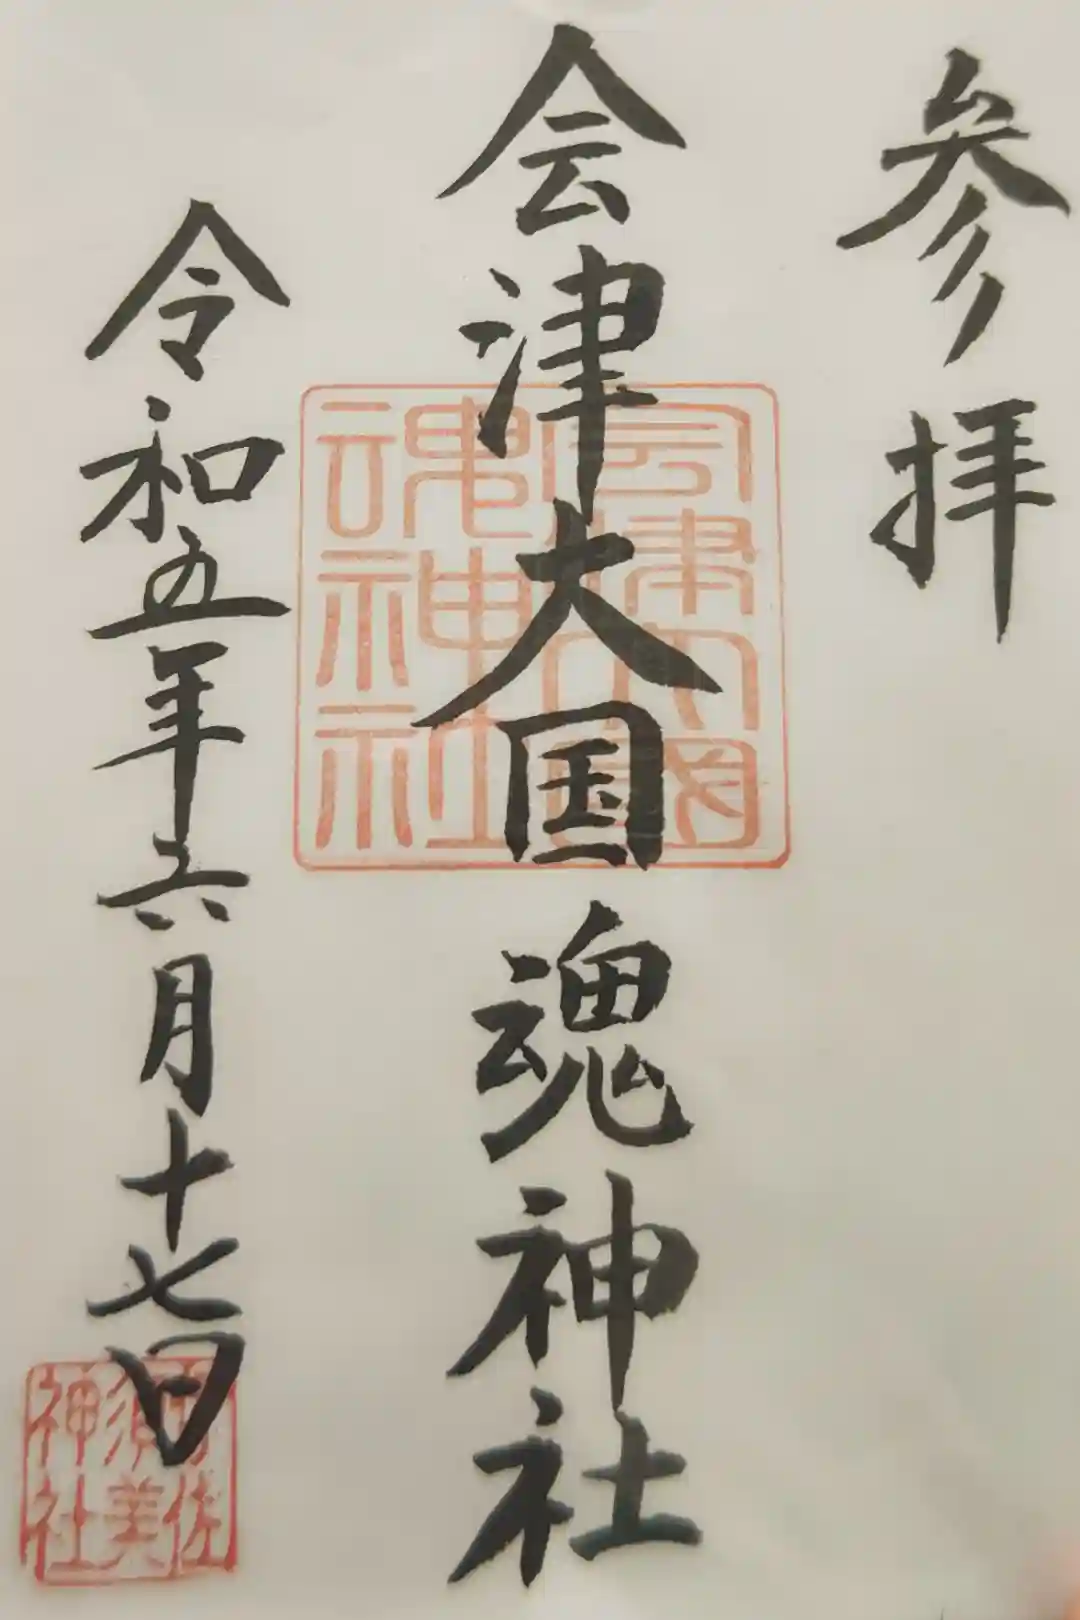 参拝
会津大国魂神社
会津大國魂神社
令和五年六月十七日
佐須美神社